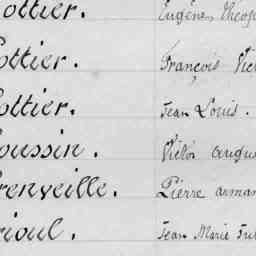 ottier. Eugène, Théop
ottier. François Vic
ottier. Jean Louis.
oussin. Victor Augus
renveille. Pierre arman
rioul. Jean Marie Ju